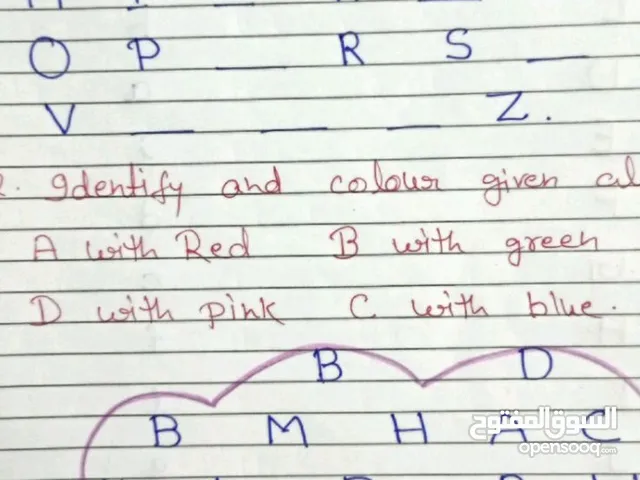 O P __ R S __
V __ __ __ Z.
2. Identify and colour given al
A with Red B with green
D with pink C with blue.
B D
B M H A C
السوق المفتوح
opensooq.com